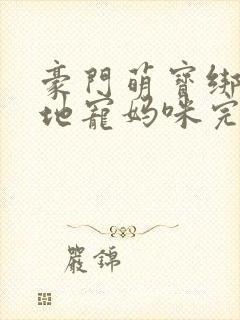 豪門萌寶綁
地寵媽咪完
嚴錦